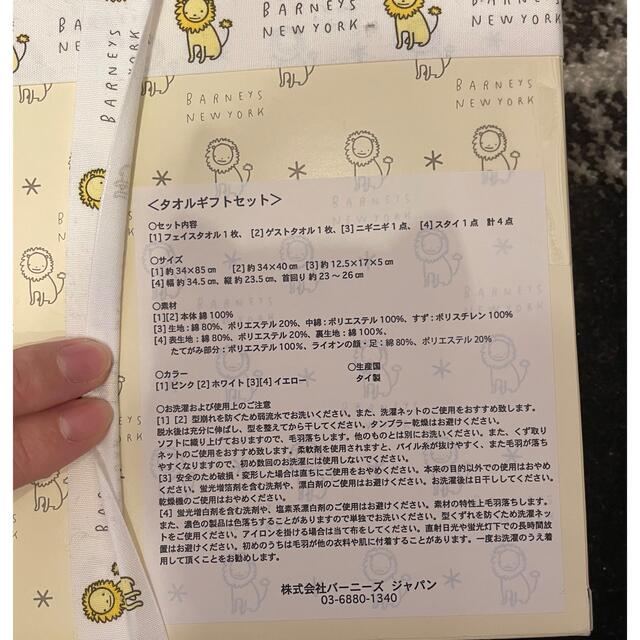 BARNEYS
NEWYORK
BARNEYS
NEWYORK
BARNEYS
NEWYORK
BARNEYS
NEWYORK
＜タオルギフトセット＞
○セット内容
[1]フェイスタオル1枚、 [2]ゲストタオル1枚、[3]ニギニギ1点、 [4]スタイ1点 計4点
○サイズ
[1]約34×85㎝ [2]約34×40㎝ [3]約12.5×17×5㎝
[4]幅約34.5㎝、縦約23.5㎝、首回り約23～26㎝
○素材
[1][2]本体 綿100%
[3]生地：綿80%、ポリエステル20%、中綿：ポリエステル100%、すず：ポリスチレン100%
[4]表生地：綿80%、ポリエステル20%、裏生地：綿100%、
たてがみ部分：ポリエステル100%、ライオンの顔・足：綿80%、ポリエステル20%
○カラー ○生産国
[1]ピンク [2]ホワイト [3][4]イエロー タイ製
○お洗濯および使用上のご注意
[1] [2] 型崩れを防ぐため弱流水でお洗いください。また、洗濯ネットのご使用をおすすめ致します。
脱水後は充分に伸ばし、型を整えてから干してください。タンブラー乾燥はお避けください。
ソフトに織り上げておりますので、毛羽落ちします。他のものとは別にお洗いください。また、くず取り
ネットのご使用をおすすめ致します。柔軟剤を使用されますと、パイル糸が抜けやすく、また毛羽が落ち
やすくなりますので、初め数回のお洗濯には使用しないでください。
[3] 安全のため破損・変形した場合は直ちにご使用をおやめください。本来の目的以外での使用はおやめ
ください。蛍光増箔剤を含む洗剤や、漂白剤のご使用はお避けください。お洗濯後は日干ししてください。
乾燥機のご使用はおやめください。
[4] 蛍光増白剤を含む洗剤や、塩素系漂白剤のご使用はお避けください。素材の特性上毛羽落ちします。
また、濃色の製品は色落ちすることがありますので単独でお洗いください。型くずれを防ぐため洗濯ネッ
トをご使用ください。アイロンを掛ける場合は当て布をしてください。直射日光や蛍光灯下での長時間放
置はお避けください。初めのうちは毛羽が他の衣料や肌に付着することがあります。一度お洗濯のうえ着
用して頂くことをお勧めします。
株式会社バーニーズ ジャパン
03-6880-1340